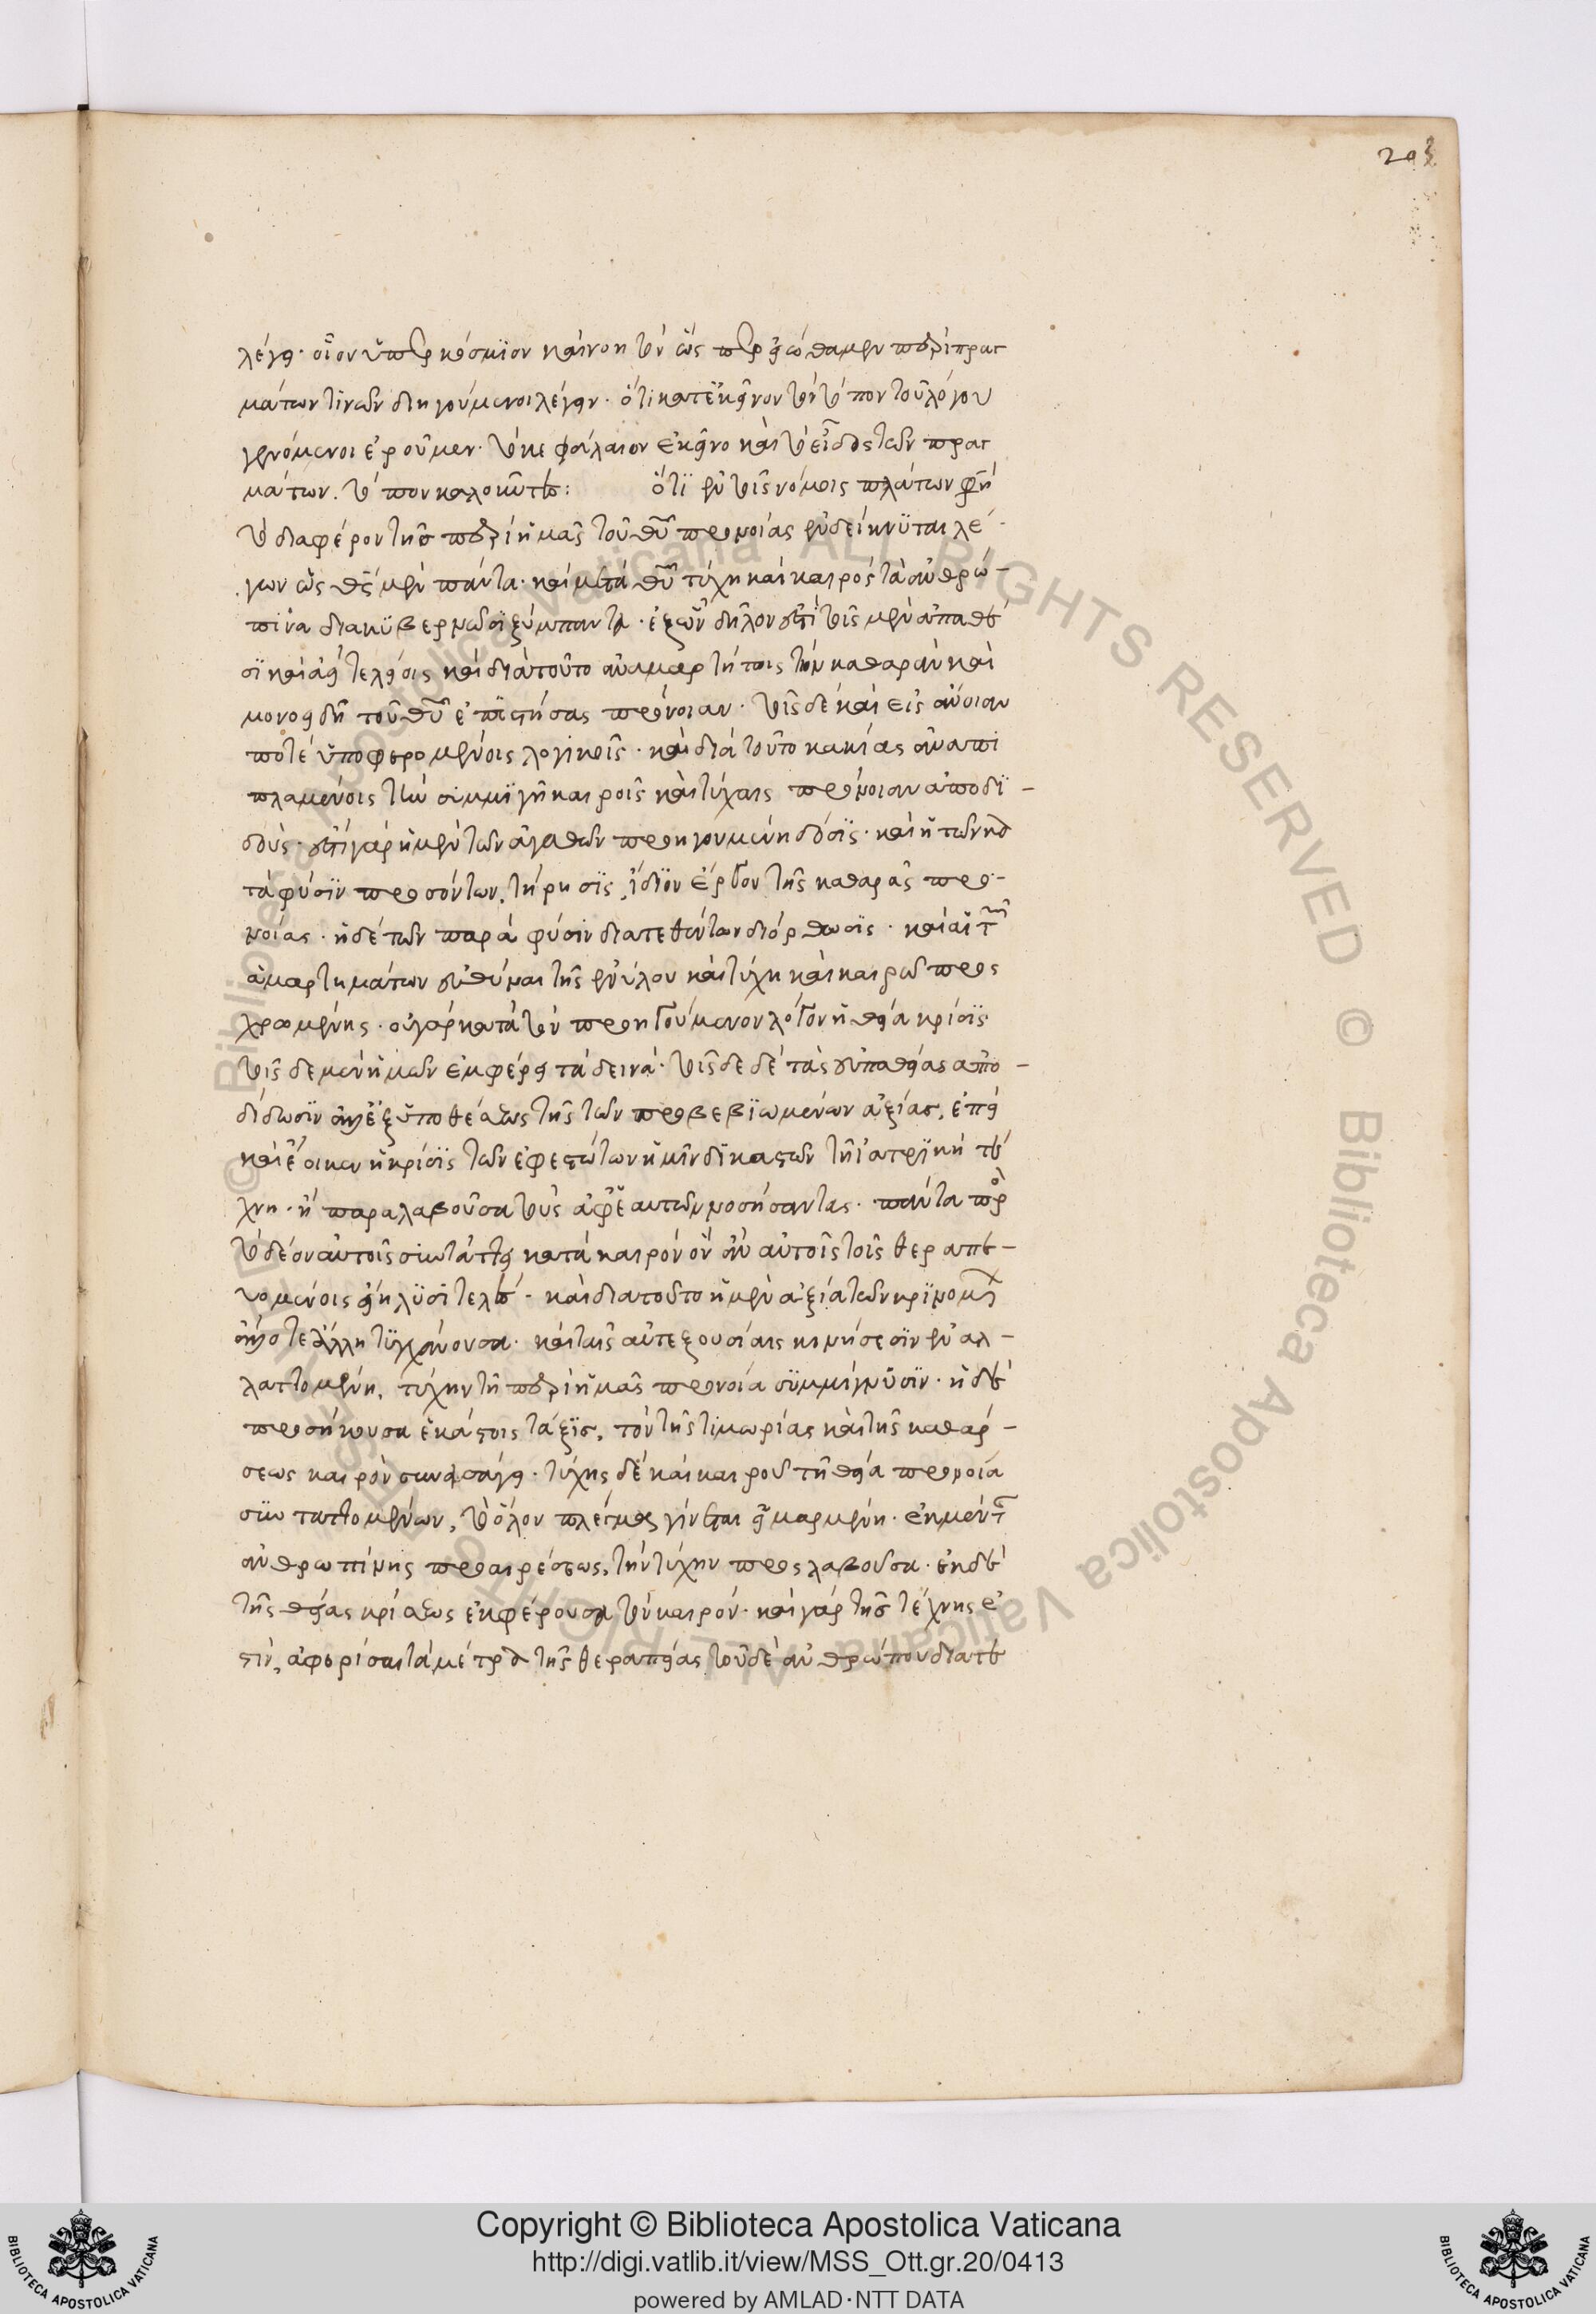 203
λέγει· οἷον ὑπερκόσμιον καινοη τὸν ὥς περ εἰώθαμεν περὶ πραγ
μάτων τινῶν διηγούμενοι λέγειν· ὅτι κατ' ἐκεῖνον τὸν τόπον τοῦ λόγου
γενόμενοι ἐροῦμεν· τὸ κεφάλαιον ἐκεῖνο καὶ τὸ εἶδος τῶν πραγ
μάτων. τόπον καλοῦντες: ὅτι ἐν τοῖς νόμοις πλάτων φησὶ
τὸ διαφέρον τῆς περὶ ἡμᾶς τοῦ θυ προνοίας ἐνδείκνυται λέ-
γων ὡς θς μὲν πάντα· καὶ μετὰ θυ τύχη καὶ καιρὸς τὰ ἀνθρώ-
πινα διακυβερνῶσι ξύμπαντα· ἐξ ὧν δῆλον ὅτι τοῖς μὲν ἀπαθέ
σι καὶ ἀεὶ τελείοις καὶ διὰ τοῦτο ἀναμαρτήτοις τὴν καθαρὰν καὶ
μονοειδῆ τοῦ θυ ἐπιστήσας πρόνοιαν· τοῖς δὲ καὶ εἰς ἄνοιαν
ποτὲ ὑποφερομένοις λογικοῖς· καὶ διὰ τοῦτο κακίας ἀναπι
πλαμένοις τὴν συμμιγῆ καιροῖς καὶ τύχαις πρόνοιαν ἀποδι-
δούς· ὅτι γὰρ ἡ μὲν τῶν ἀγαθῶν προηγουμένη δόσις· καὶ ἡ τῶν κα
τὰ φύσιν προσόντων, τήρησις, ἴδιον ἔργον τῆς καθαρᾶς προ-
νοίας· ἡ δὲ τῶν παρὰ φύσιν διατεθέντων διόρθωσις· καὶ αἱ τῶν
ἁμαρτημάτων εὐθύναι τῆς ἐνύλου καὶ τύχη καὶ καιρῶ προς
χρωμένης· οὐ γὰρ κατὰ τὸν προηγούμενον λόγον ἡ θεία κρίσις
τοῖς δε μὲν ἡμῶν ἐκφέρει τὰ δεινά· τοῖς δε δὲ τὰς εὐπαθείας ἀπο-
δίδωσιν ἀλλ' ἐξ ὑποθέσεως τῆς τῶν προβεβιωμένων ἀξίας, ἐπεὶ
καὶ ἔοικεν ἡ κρίσις τῶν ἐφεστώτων ἡμῖν δικαστῶν τῆ ἰατρικῆ τέ
χνη· ἣ παραλαβοῦσα τοὺς ἀφ' ἑαυτῶν νοσήσαντας· πάντα πρὸς
τὸ δέον αὐτοῖς συντάττει κατὰ καιρὸν ὃν ἂν αὐτοῖς τοῖς θεραπε-
υομένοις ἤη λυσιτελές· καὶ διὰ τοῦτο ἡ μὲν ἀξία τῶν κρινομένων
ἄλλοτε ἄλλη τυγχάνουσα· καὶ ταῖς αὐτεξουσίαις κινήσεσιν ἐναλ-
λαττομένη, τύχην τῆ περὶ ἡμᾶς προνοία συμμίγνυσιν· ἡ δὲ
προσήκουσα ἑκάστοις τάξις, τὸν τῆς τιμωρίας καὶ τῆς καθάρ-
σεως καιρὸν συνεισάγει· τύχης δὲ καὶ καιροῦ τῆ θεία προνοία
συνταττομένων, τὸ ὅλον πλέγμα γίνεται εἱμαρμένη· ἐκ μὲν τῆς
ἀνθρωπίνης προαιρέσεως, τὴν τύχην προσλαβοῦσα· ἐκ δὲ
τῆς θείας κρίσεως ἐκφέρουσα τὸν καιρόν· καὶ γὰρ τῆς τέχνης ἐ
στιν, ἀφορίσαι τὰ μέτρα τῆς θεραπείας τοῦ δὲ ἀνθρώπου διατε
© Biblioteca Apostolica Vaticana ALL RIGHTS RESERVED
Copyright © Biblioteca Apostolica Vaticana
http://digi.vatlib.it/view/MSS_Ott.gr.20/0413
powered by AMLAD·NTT DATA
BIBLIOTECA APOSTOLICA VATICANA
BIBLIOTECA APOSTOLICA VATICANA